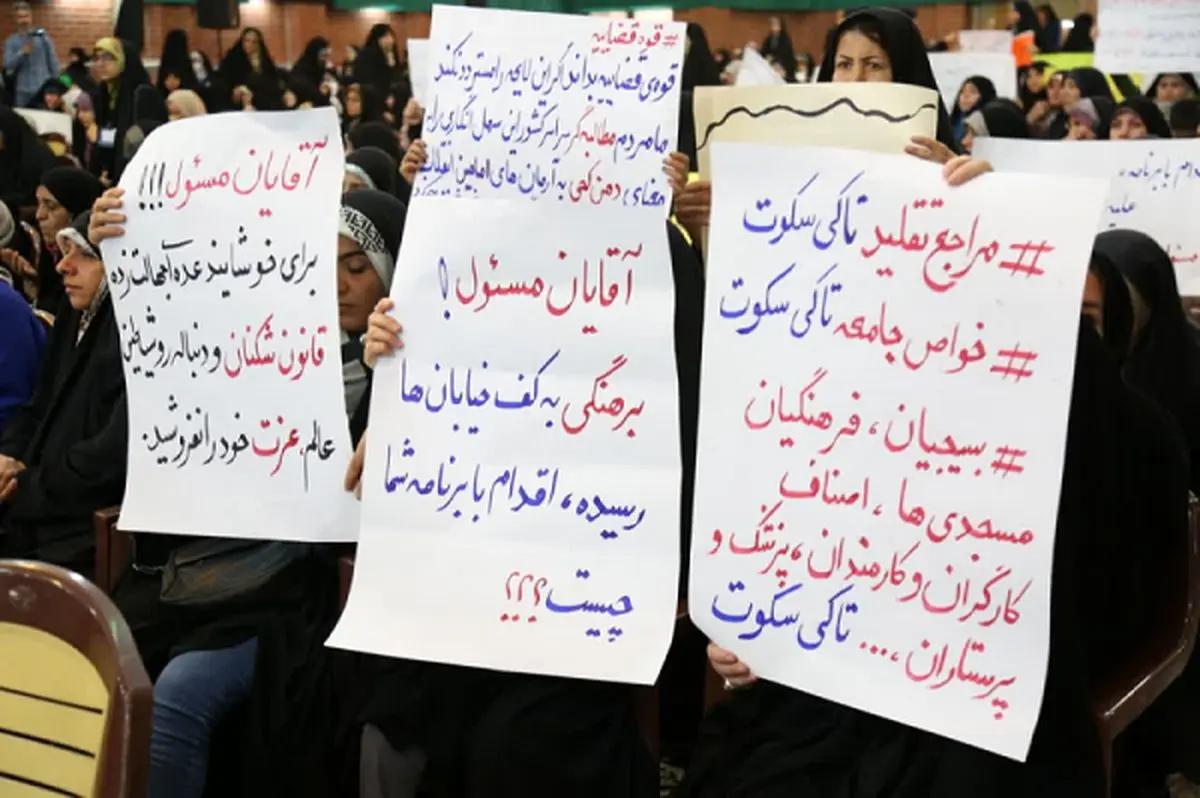 آقایان مسئول!!!
برای خوشایند عده‌ای جهالت زده
قانون شکنان و دنباله رو شیاطین
عالم، عزت خود را نفروشید.
#قوه قضاییه
قوه‌ی قضاییه بداند اگر این لایحه را مسترد نکند
ما مردم مطالبه گر سراسر کشور این سهل انگاری را به
معنای دهن کجی به آرمان های امامین انقلاب
آقایان مسئول!
برهنگی به کف خیابان ها
رسیده، اقدام با برنامه شما
چیست؟؟؟
# مراجع تقلید تا کی سکوت
# خواص جامعه تا کی سکوت
# بسیجیان، فرهنگیان
مسجدی ها، اصناف
کارگران و کارمندان، پزشک و
پرستاران،... تا کی سکوت
اقدام با برنامه
علیه